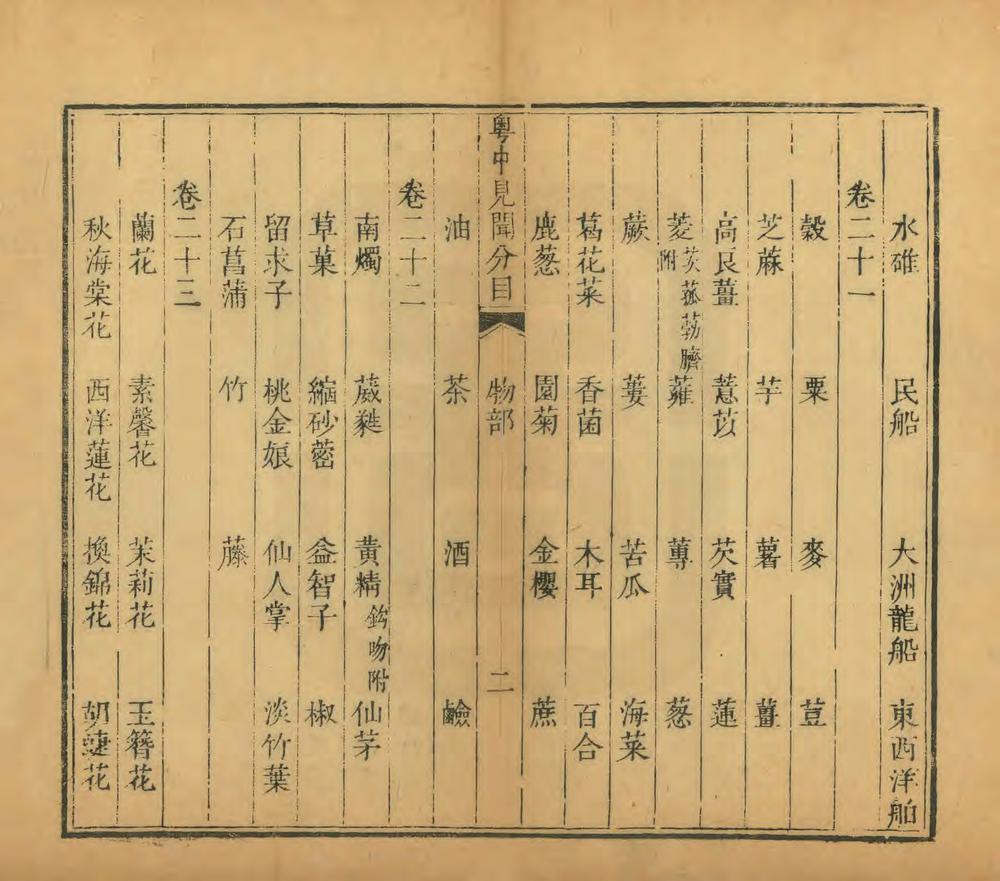 水碓 民船 大洲龍船 東西洋舶
卷二十一
穀 粟 麥 荳
芝蔴 芋 薯 薑
高艮薑 薏苡 芡實 蓮
菱芡菰葧臍附 蕹 蓴 葱
蕨 蔞 苦瓜 海菜
葛花菜 香菌 木耳 百合
鹿葱 園菊 金櫻 蔗
粤中見聞分目 物部 二
油 茶 酒 鹼
卷二十二
南燭 葳蕤 黄精鈎吻附 仙茅
草菓 縮砂蔤 益智子 椒
留求子 桃金娘 仙人掌 淡竹葉
石菖蒲 竹 藤
卷二十三
蘭花 素馨花 茉莉花 玉簪花
秋海棠花 西洋蓮花 換錦花 蝴蝶花